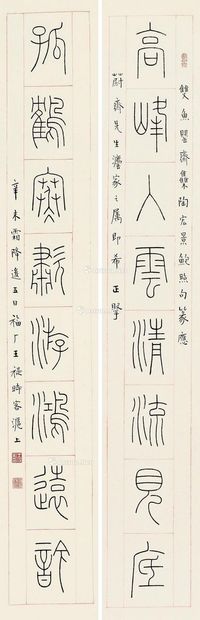 雙魚罌齋集陶宏景鮑照句篆應
高峰入雲清流見底
蔚齋先生灋家之屬即希正擥
孤鶴寒嘯游鴻遠訡
辛未霜降後五日福厂王禔時客滬上